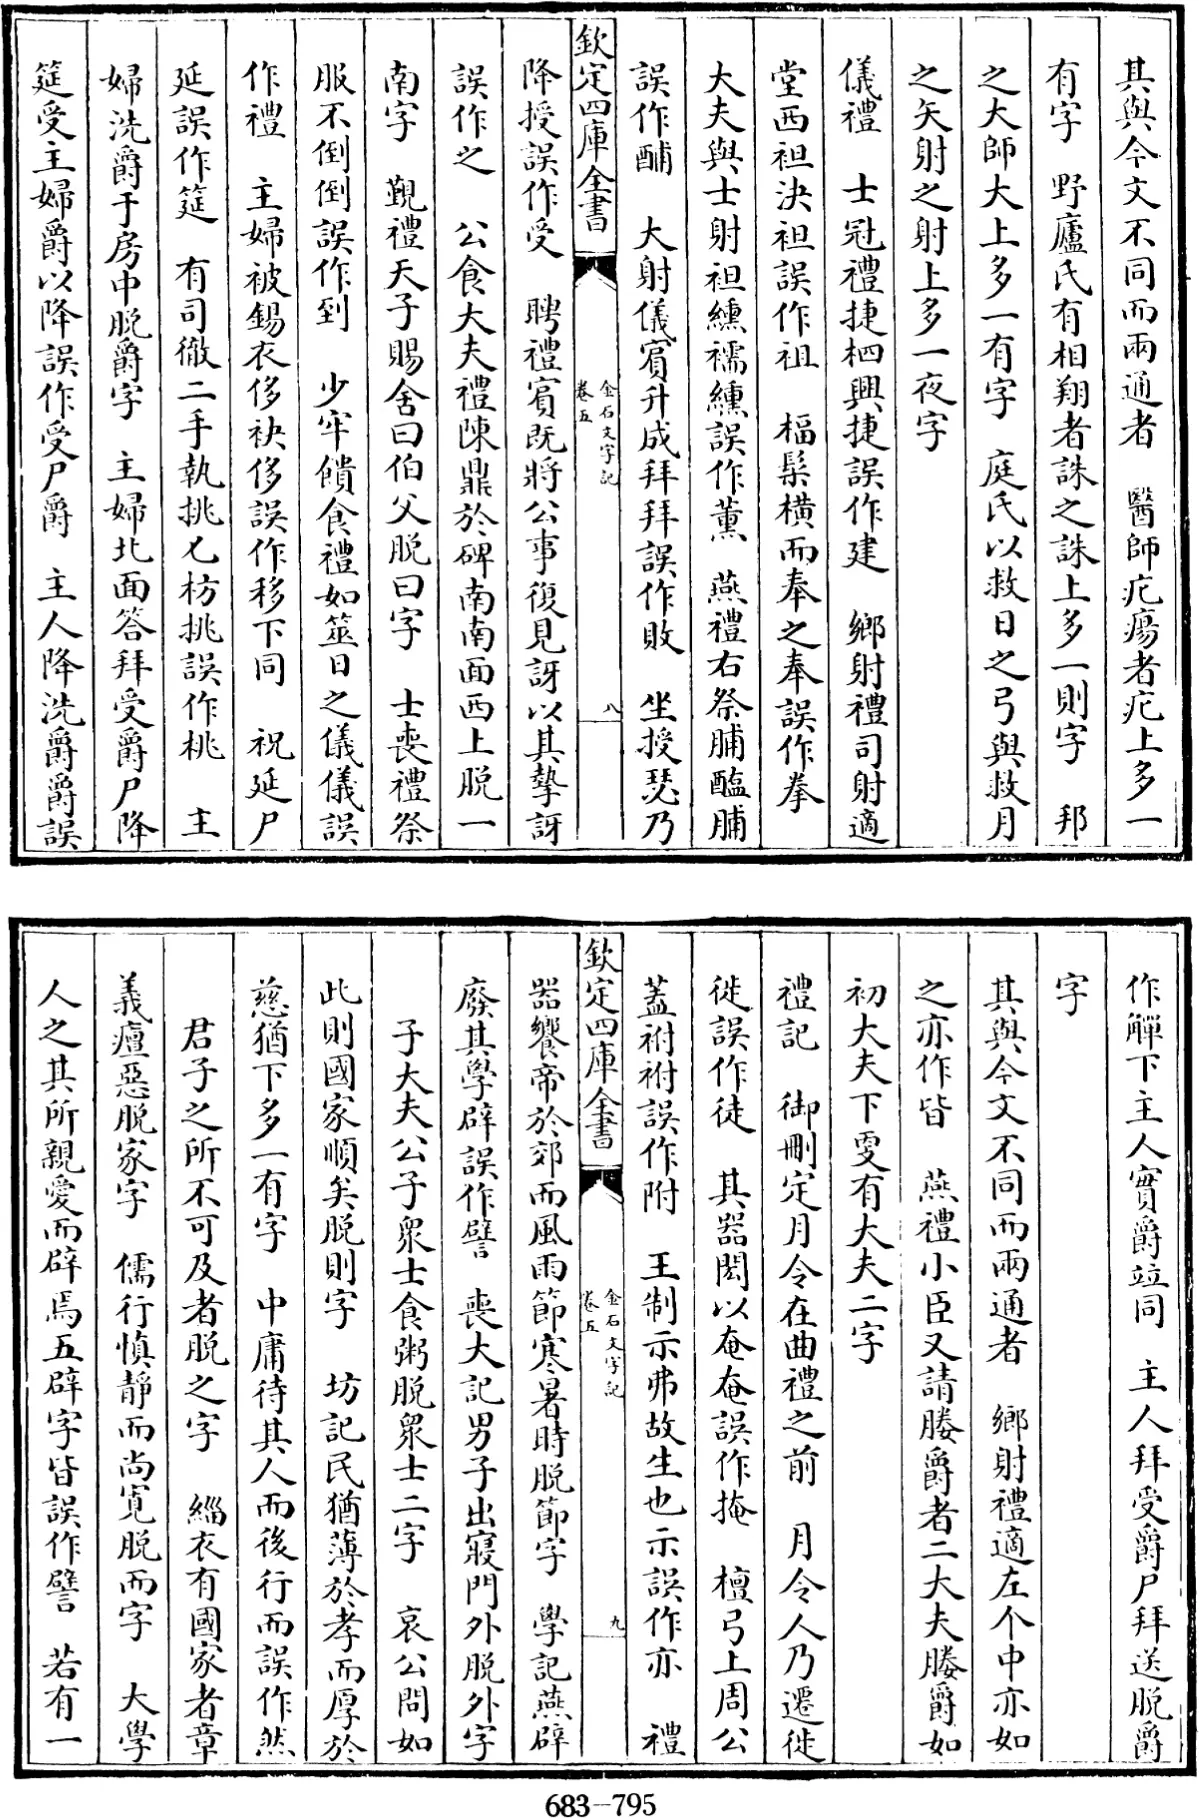 其與今文不同而兩通者　醫師疕瘍者疕上多一
有字　野廬氏有相翔者誅之誅上多一則字　邦
之大師大上多一有字　庭氏以救日之弓與救月
之矢射之射上多一夜字
儀禮　士冠禮捷柶興捷誤作建　鄉射禮司射適
堂西袒決袒誤作祖　楅髹橫而奉之奉誤作拳
大夫與士射袒纁襦纁誤作薰　燕禮右祭脯醢脯
誤作酺　大射儀賓升成拜拜誤作敗　坐授瑟乃
欽定四庫全書
金石文字記
卷五
八
降授誤作受　聘禮賓既將公事復見訝以其摯訝
誤作之　公食大夫禮陳鼎於碑南南面西上脱一
南字　覲禮天子賜舍曰伯父脱曰字　士喪禮祭
服不倒倒誤作到　少牢饋食禮如筮日之儀儀誤
作禮　主婦被錫衣侈袂侈誤作移下同　祝延尸
延誤作筵　有司徹二手執挑匕枋挑誤作桃　主
婦洗爵于房中脱爵字　主婦北面答拜受爵尸降
筵受主婦爵以降誤作受尸爵　主人降洗爵爵誤
作觶下主人實爵竝同　主人拜受爵尸拜送脱爵
字
其與今文不同而兩通者　鄉射禮適左个中亦如
之亦作皆　燕禮小臣又請媵爵者二大夫媵爵如
初大夫下雙有大夫二字
禮記　御刪定月令在曲禮之前　月令人乃遷徙
徙誤作徒　其器閎以奄奄誤作掩　檀弓上周公
蓋祔祔誤作附　王制示弗故生也示誤作亦　禮
欽定四庫全書
金石文字記
卷五
九
器饗帝於郊而風雨節寒暑時脱節字　學記燕辟
廢其學辟誤作譬　喪大記男子出寢門外脱外字
子大夫公子衆士食粥脱衆士二字　哀公問如
此則國家順矣脱則字　坊記民猶薄於孝而厚於
慈猶下多一有字　中庸待其人而後行而誤作然
君子之所不可及者脱之字　緇衣有國家者章
義癉惡脱家字　儒行慎靜而尚寬脱而字　大學
人之其所親愛而辟焉五辟字皆誤作譬　若有一
683-795